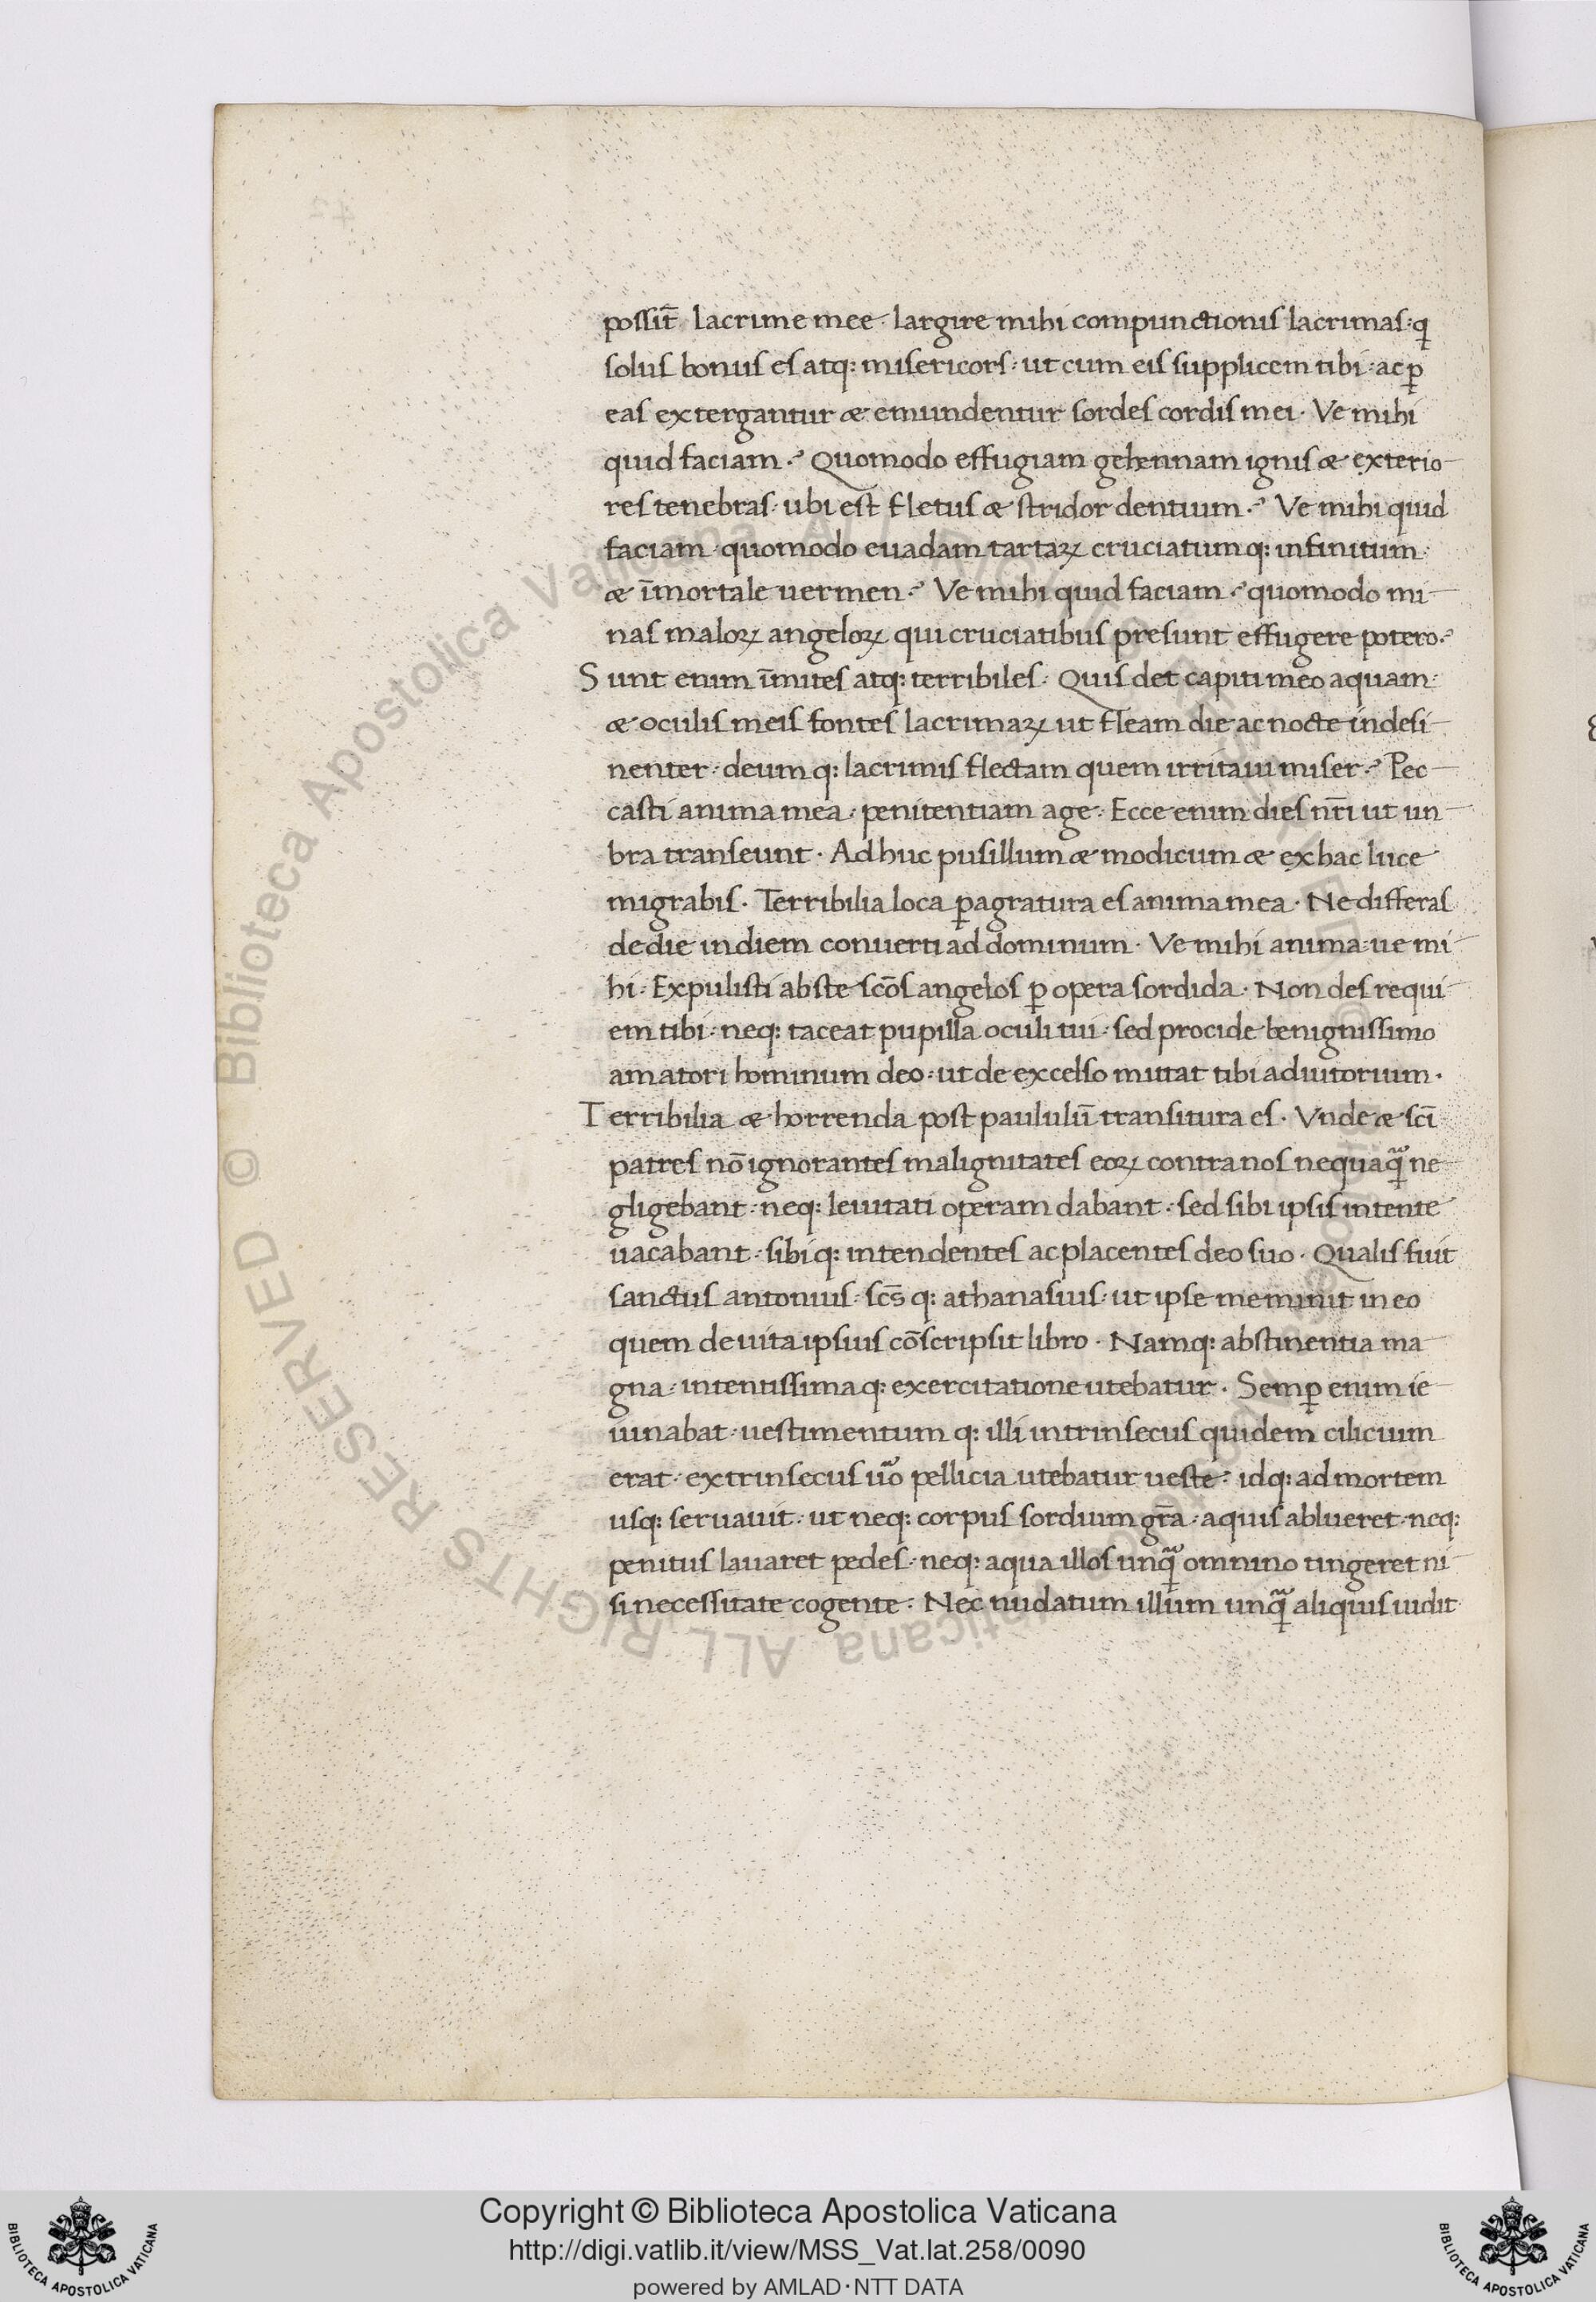 possit̄ lacrime mee · largire mihi compunctionis lacrimas : qͥ
solus bonus es atq: misericors : ut cum eis supplicem tibi : ac ꝑ
eas extergantur & emundentur sordes cordis mei · Ve mihi
quid faciam ? Quomodo effugiam gehennam ignis & exterio-
res tenebras · ubi est fletus & stridor dentium ? Ve mihi quid
faciam · quomodo euadam tartaꝝ cruciatumq: infinitum ·
& īmortale uermen ? Ve mihi quid faciam ? quomodo mi-
nas maloꝝ angeloꝝ qui cruciatibus presunt effugere potero ?
Sunt enim īmites atq: terribiles · Quis det capiti meo aquam :
& oculis meis fontes lacrimaꝝ ut fleam die ac nocte indesi-
nenter : deumq: lacrimis flectam quem irritaui miser ? Pec-
casti anima mea : penitentiam age : Ecce enim dies nr̄i ut un-
bra transeunt · Ad huc pusillum & modicum & ex hac luce
migrabis · Terribilia loca ꝑagratura es anima mea · Ne differas
de die in diem conuerti ad dominum · Ve mihi anima : ue mi-
hi : Expulisti abs te sc̄os angelos ꝑ opera sordida · Non des requi-
em tibi : neq: taceat pupilla oculi tui : sed procide benignissimo
amatori hominum deo : ut de excelso mittat tibi adiutorium ·
Terribilia & horrenda post paululū transitura es · Vnde & sc̄i
patres nō ignorantes malignitates eoꝝ contra nos nequaqᷓ ne-
gligebant : neq: leuitati operam dabant : sed sibi ipsis intente
uacabant : sibiq: intendentes ac placentes deo suo · Qualis fuit
sanctus antonius : sc̄s q: athanasius · ut ipse meminit in eo
quem de uita ipsius cōscripsit libro · Namq: abstinentia ma-
gna : intentissimaq: exercitatione utebatur · Semꝑ enim ie-
iunabat : uestimentum q: illi intrinsecus quidem cilicium
erat : extrinsecus uͦo pellicia utebatur ueste : idq: ad mortem
usq: seruauit : ut neq: corpus sordium gr̄a · aquis ablueret · neq:
penitus lauaret pedes : neq: aqua illos unqᷓ omnino tingeret ni-
si necessitate cogente : Nec nudatum illum unqᷓ aliquis uidit
Copyright © Biblioteca Apostolica Vaticana
http://digi.vatlib.it/view/MSS_Vat.lat.258/0090
powered by AMLAD·NTT DATA